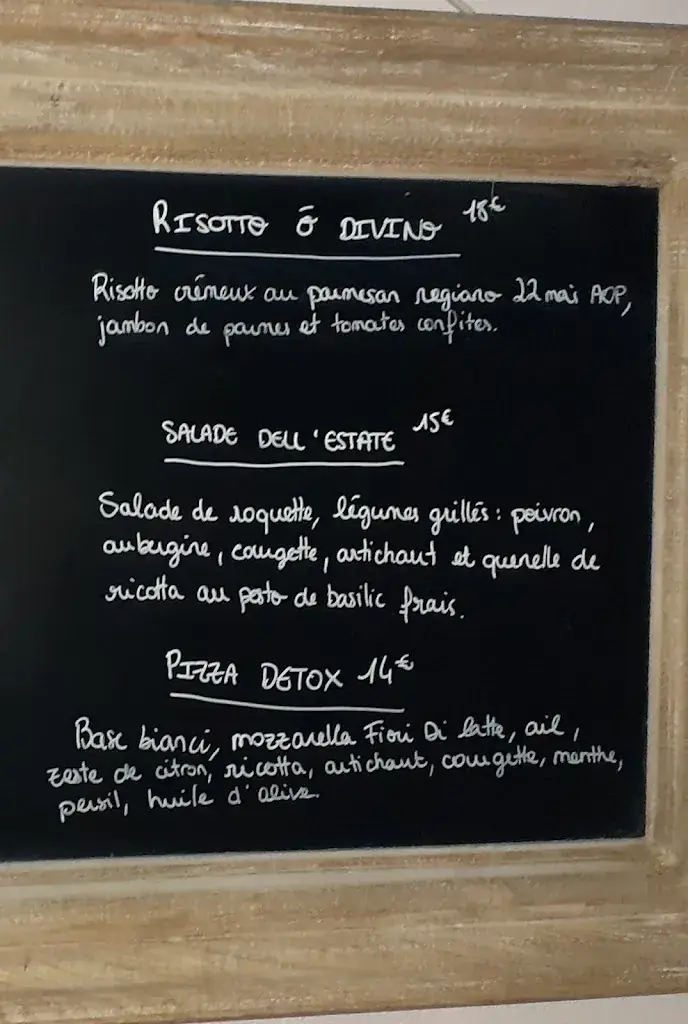 RISOTTO Ô DIVINO 18€
Risotto crémeux au parmesan regiano 22 mois AOP,
jambon de parmes et tomates confites.
SALADE DELL'ESTATE 15€
Salade de roquette, légumes grillés : poivron,
aubergine, courgette, artichaut et quenelle de
ricotta au pesto de basilic frais.
PIZZA DETOX 14€
Base bianci, mozzarella Fiori Di latte, ail,
zeste de citron, ricotta, artichaut, courgette, menthe,
persil, huile d'olive.